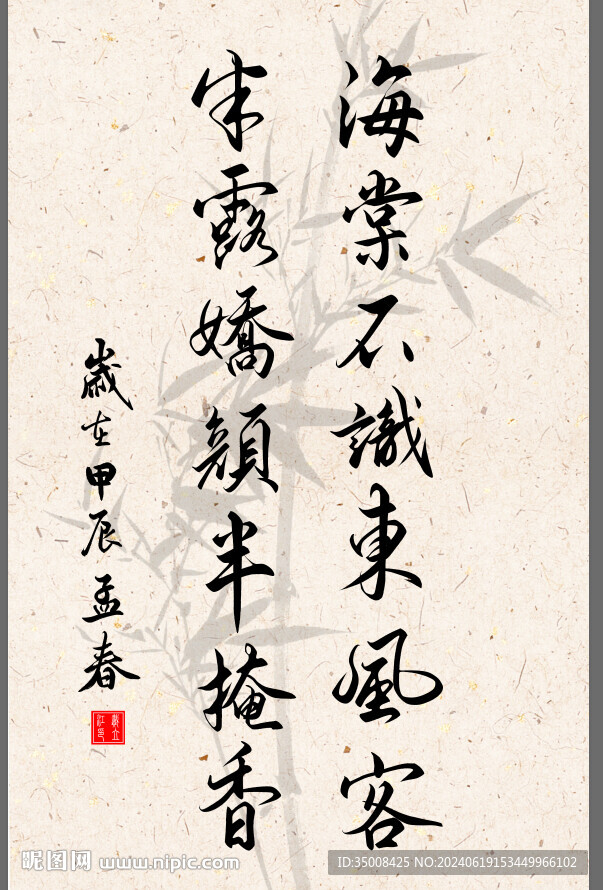 海棠不識東風客
半露嬌顏半掩香
歲在甲辰孟春
昵图网 www.nipic.com
ID:35008425 NO:20240619153449966102